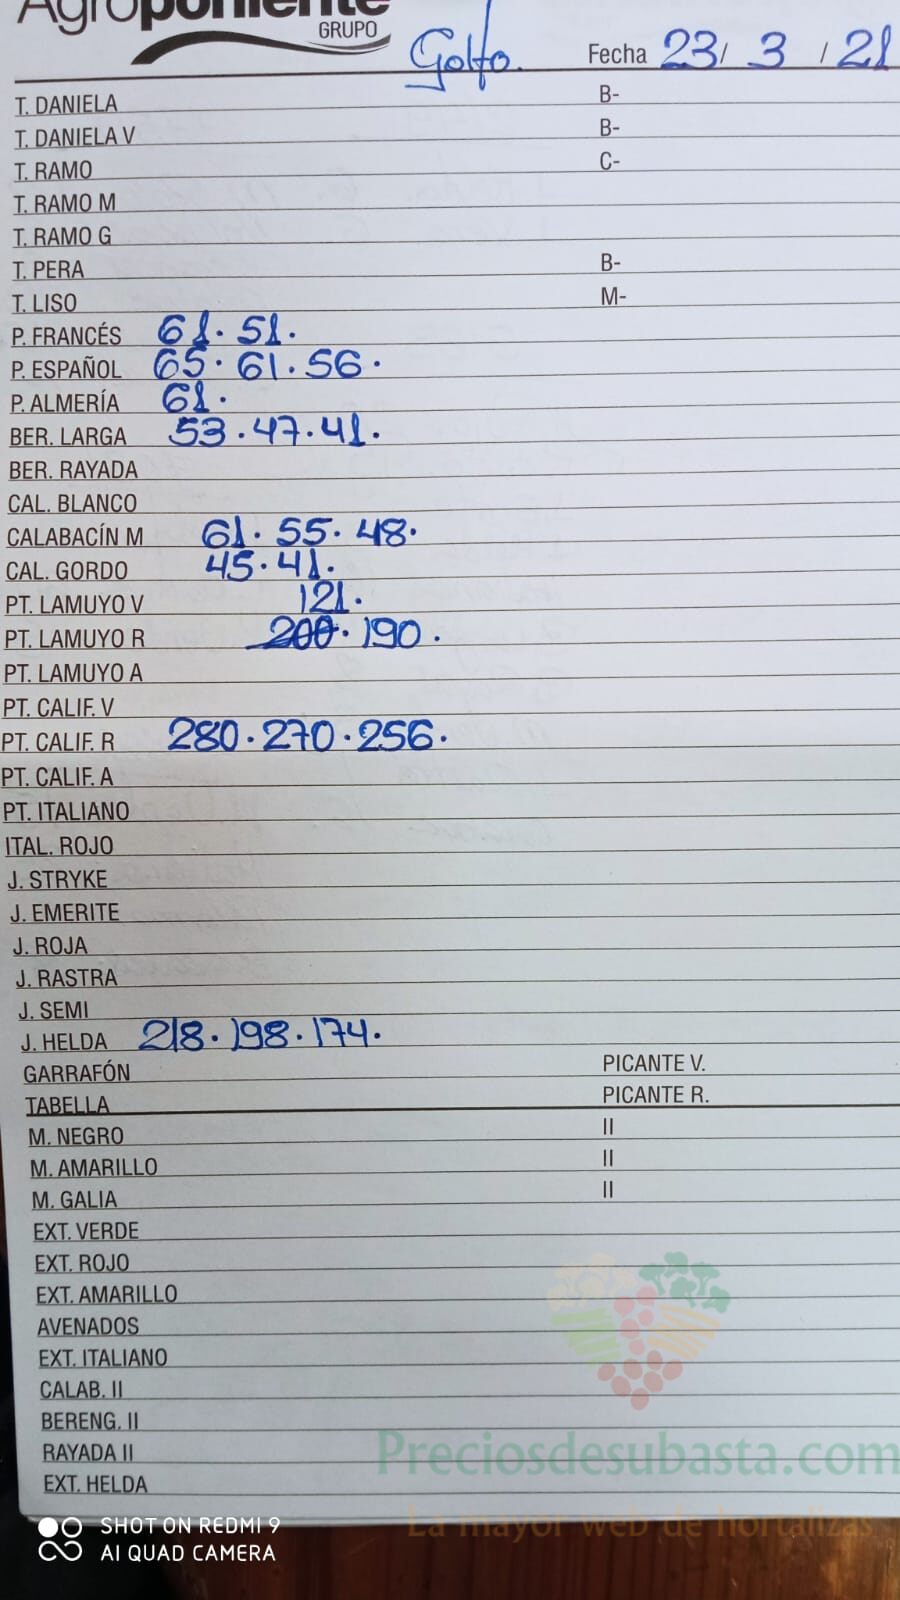 Agroponiente
GRUPO
Golfo. Fecha 23/ 3 / 21
T. DANIELA B-
T. DANIELA V B-
T. RAMO C-
T. RAMO M
T. RAMO G
T. PERA B-
T. LISO M-
P. FRANCÉS 61. 51.
P. ESPAÑOL 65. 61. 56.
P. ALMERÍA 61.
BER. LARGA 53. 47. 41.
BER. RAYADA
CAL. BLANCO
CALABACÍN M 61. 55. 48.
CAL. GORDO 45. 41.
PT. LAMUYO V 121.
PT. LAMUYO R 200. 190.
PT. LAMUYO A
PT. CALIF. V
PT. CALIF. R 280. 270. 256.
PT. CALIF. A
PT. ITALIANO
ITAL. ROJO
J. STRYKE
J. EMERITE
J. ROJA
J. RASTRA
J. SEMI
J. HELDA 218. 198. 174.
GARRAFÓN PICANTE V.
TABELLA PICANTE R.
M. NEGRO II
M. AMARILLO II
M. GALIA II
EXT. VERDE
EXT. ROJO
EXT. AMARILLO
AVENADOS
EXT. ITALIANO
CALAB. II
BERENG. II
RAYADA II
EXT. HELDA
Preciosdesubasta.com
La mayor web de hortalizas
SHOT ON REDMI 9
AI QUAD CAMERA